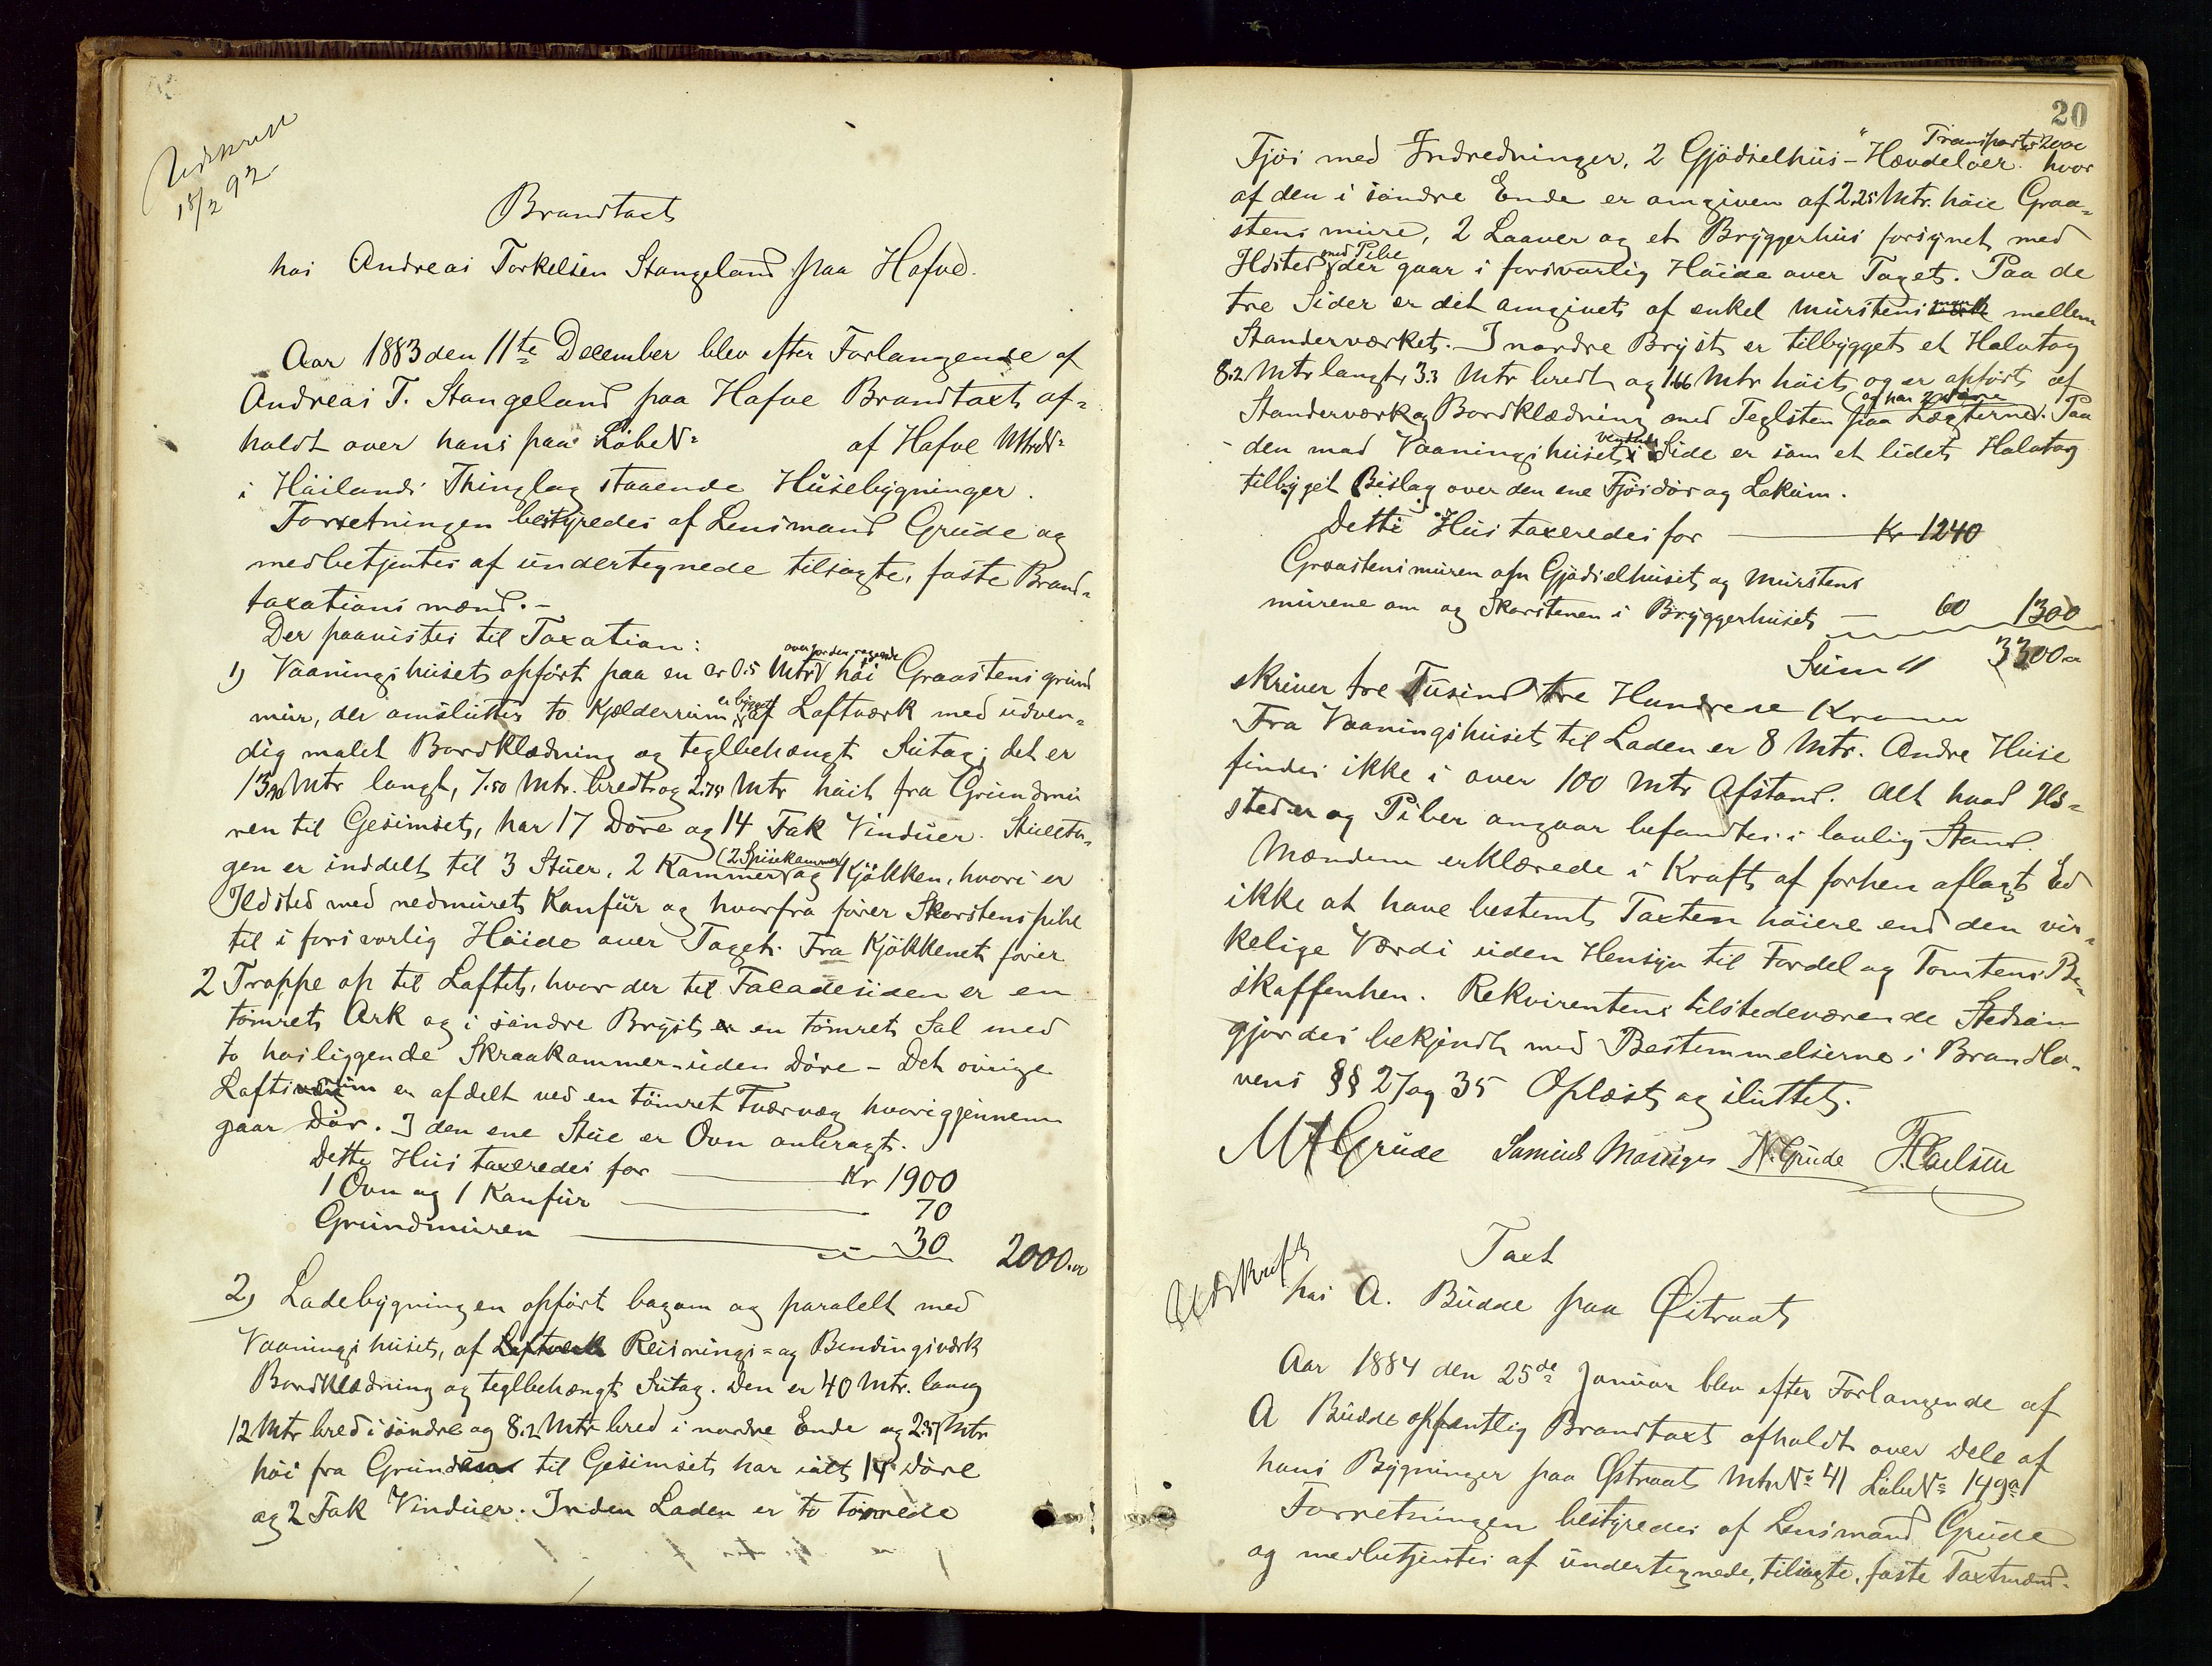 Udskrift
18/2 92
Brandtaxt
hos Andreas Torkelsen Stangeland paa Hafve.
Aar 1883 den 11te December blev efter Forlangende af
Andreas T. Stangeland paa Hafve Brandtaxt af-
holdt over hans paa Løbe№ af Hafve Mtr№
i Høilands Thinglag staaende Husebygninger.
Forretningen bestyredes af Lensmand Grude og
medbetjentes af undertegnede tilsagte, faste Brand-
taxationsmænd.-
Der paavistes til Taxation:
1) Vaaningshuset opført paa en er 0.5 Mtr over Jorden ragende høi Graastens grund
mur, der omslutter to Kjælderrum, er bygget af Loftværk med udven-
dig malet Bordklædning og teglbehængt Sutag; det er
13,90 Mtr langt, 7.50 Mtr. bredt og 2.75 Mtr høit fra Grundmu
ren til Gesimset, har 17 Døre og 14 Fak Vinduer. Stueeta-
gen er inddelt til 3 Stuer, 2 Kammer (2 Spisekammer) og 1 Kjøkken, hvori er
Ildsted med nedmuret Komfür og hvorfra fører Skorstenspibe
til i forsvarlig Høide over Taget. Fra Kjøkkenet fører
2 Trappe op til Loftet, hvor der til Facadesiden er en
tømret Ark og i søndre Bryst er en tømret Sal med
to hosliggende Skraakammer uden Døre - Det øvrige
Loftsrum er afdelt ved en tømret Tværvæg hvorigjennem
gaar Dør. I den ene Stue er Ovn anbragt.
Dette Hus taxeredes for Kr 1900
1 Ovn og 1 Komfur 70
Grundmuren 30 2000.00
2) Ladebygningen opført bagom og paralelt med
Vaaningshuset, af Loftværk Reisnings- og Bindingsværk
Bordklædning og teglbehængt Sutag. Den er 40 Mtr. lang
12 Mtr bred i søndre og 8.2 Mtr bred i nordre Ende og 2.57 Mtr
høi fra Grunden til Gesimset har ialt 14 Døre
og 2 Fak Vinduer. Inden Laden er to tømrede
20
Transport 2000
Fjøs med Indredninger, 2 Gjødselhus - "Hævdeloer" hvor
af den i søndre Ende er omgiven af 2.25 Mtr. høie Graa-
stens mure, 2 Laaver og et Bryggerhus forsynet med
Ildsted med Pibe der gaar i forsvarlig Høide over Taget. Paa de
tre Sider er det omgivet af enkel Murstensmur mellem
Standerværket. I nordre Bryst er tilbygget et Halvtag
8.2 Mtr langt, 3.3 Mtr bredt og 1.66 Mtr høit og er opført af
Standerværk og Bordklædning med Teglsten paa Lægterne (og har 2 Døre). Paa
den mod Vaaningshuset vendende Side er som et lidet Halvtag
tilbyget Bislag over den ene Fjøsdør og Lokum.
Dette Hus taxeredes for Kr 1240
Graastensmuren om Gjødselhuset og Murstens
murene om og Skorstenen i Bryggerhuset 60 1300
Sum 3300.00
skriver tre Tusind tre Hundrede Kroner
Fra Vaaningshuset til Laden er 8 Mtr. Andre Huse
findes ikke i over 100 Mtr Afstand. Alt hvad Ild-
steder og Piber angaar befandtes i lovlig Stand.
Mændene erklærede i Kraft af forhen aflagt Ed
ikke at have bestemt Taxten høiere end den vir-
kelige Værdi uden Hensyn til Fordel og Tomtens Be-
skaffenhed. Rekvirentens tilstedeværende Stedsøn
gjordes bekjendt med Bestemmelserne i Brandlo-
vens §§ 27 og 35 Oplæst og sluttet.
M A Grude Samuel N. Grude
Udskrift
Taxt
hos A. Budde paa Østraat
Aar 1884 den 25de Januar blev efter Forlangende af
A Budde offentlig Brandtaxt afholdt over Dele af
hans Bygninger paa Østraat Mtr№ 41 Løbe№ 149a
Forretningen bestyredes af Lensmand Grude
og medbetjentes af undertegnede, tilsagte, faste Taxtmænd.